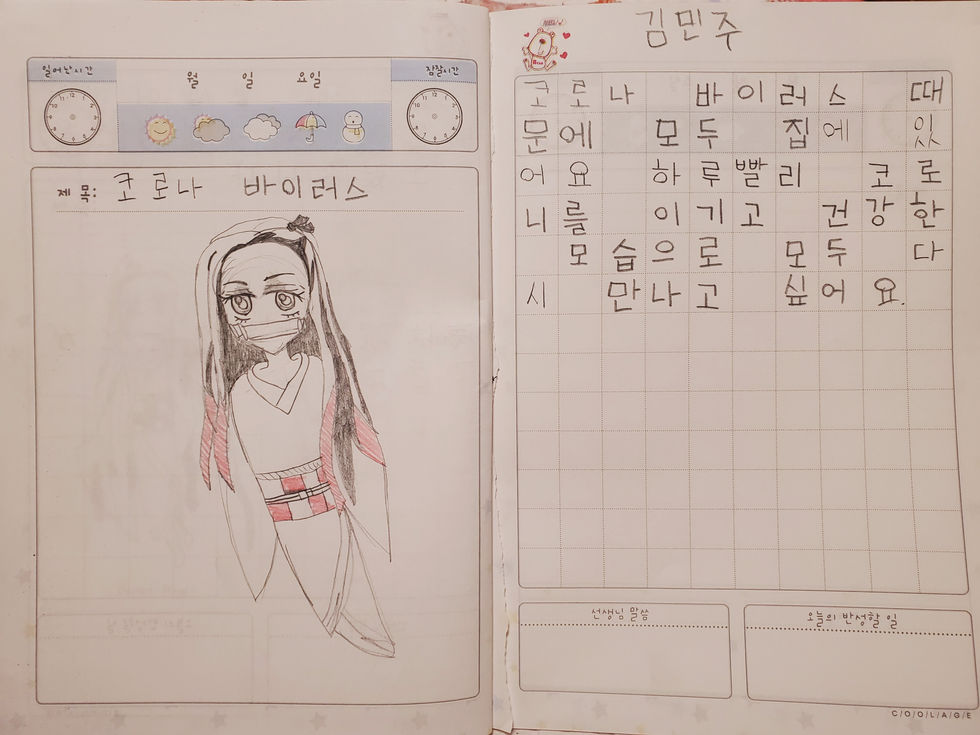 일어난시간
월 일 요일
잠잘시간
제 목: 코로나 바이러스
김민주
코로나 바이러스 때
문에 모두 집에 있
어요 하루빨리 코로
니를 이기고 건강한
모습으로 모두 다
시 만나고 싶어요.
선생님 말씀
오늘의 반성할 일
C/O/O/L/A/G/E